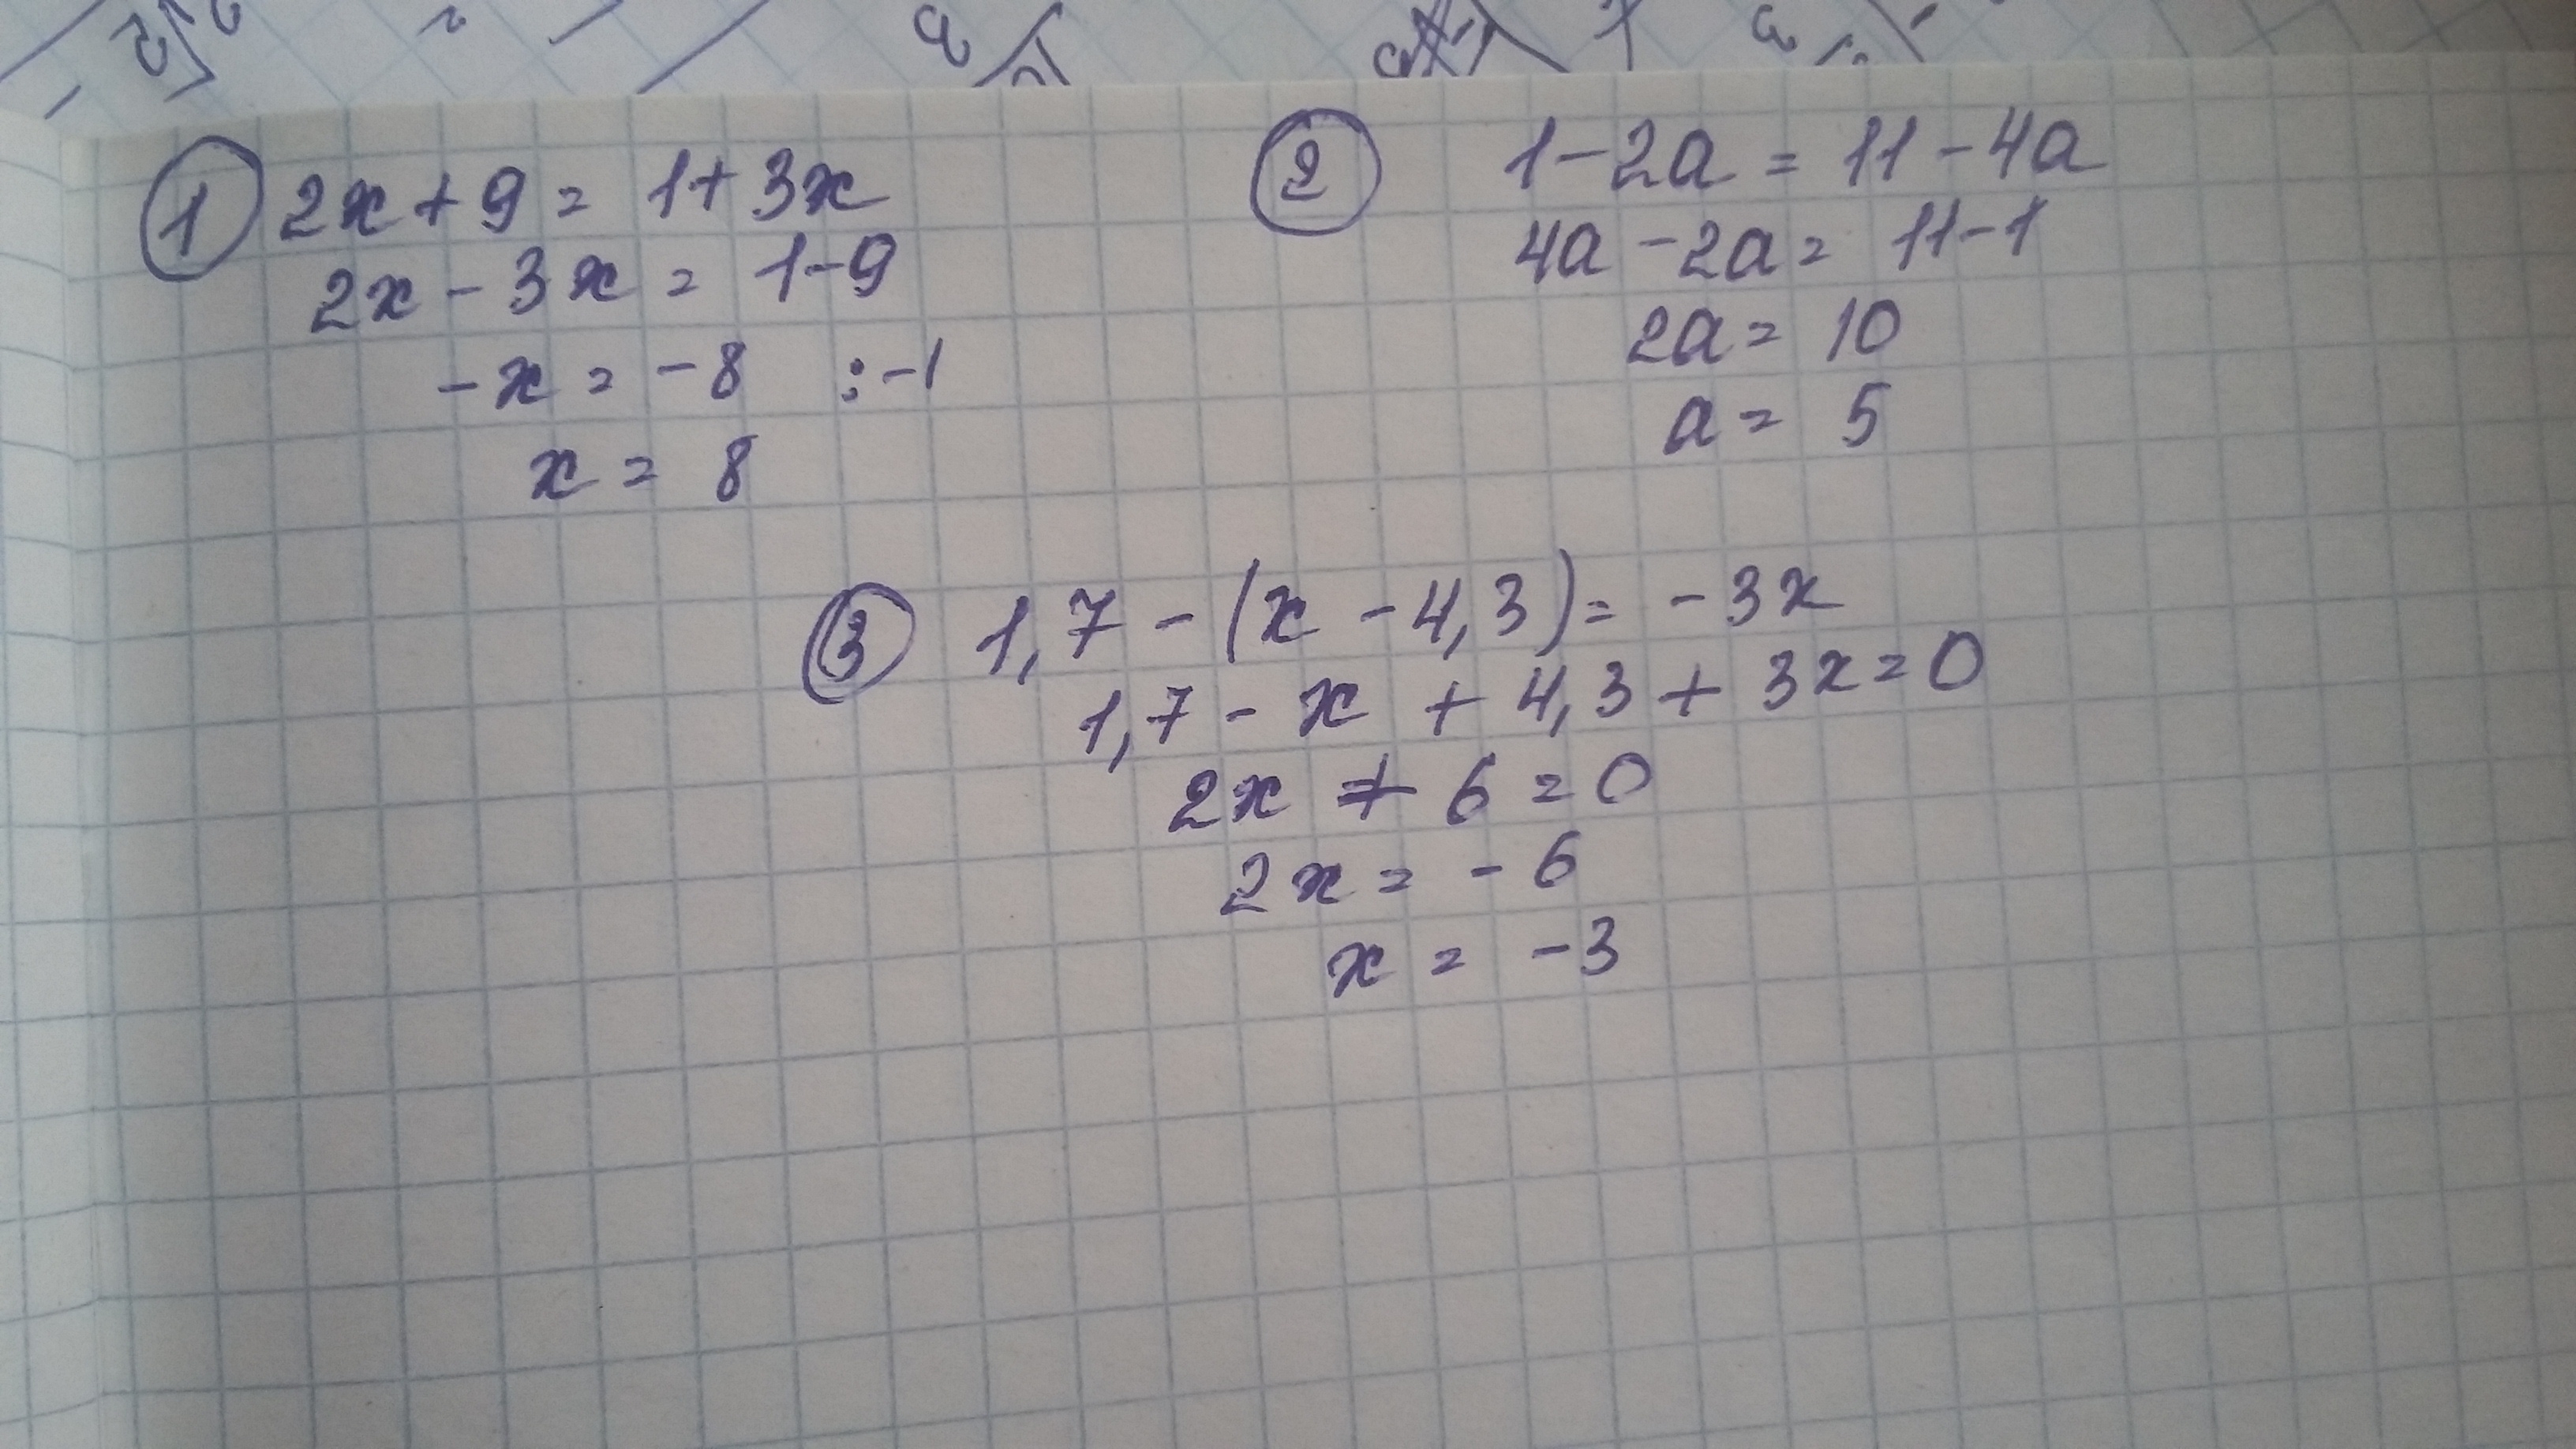 ① 2x + 9 = 1 + 3x
2x - 3x = 1 - 9
-x = -8 : -1
x = 8
② 1 - 2a = 11 - 4a
4a - 2a = 11 - 1
2a = 10
a = 5
③ 1,7 - (x - 4,3) = -3x
1,7 - x + 4,3 + 3x = 0
2x + 6 = 0
2x = -6
x = -3